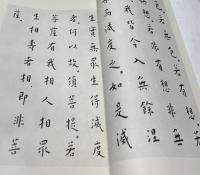 無色。若有想。若
想。若非有想非無
我皆令入無餘涅
而滅度之。如是滅
生實無眾生得滅度
者。何以故。須菩提。若
菩薩有我相人相眾
生相壽者相。即非菩
薩。